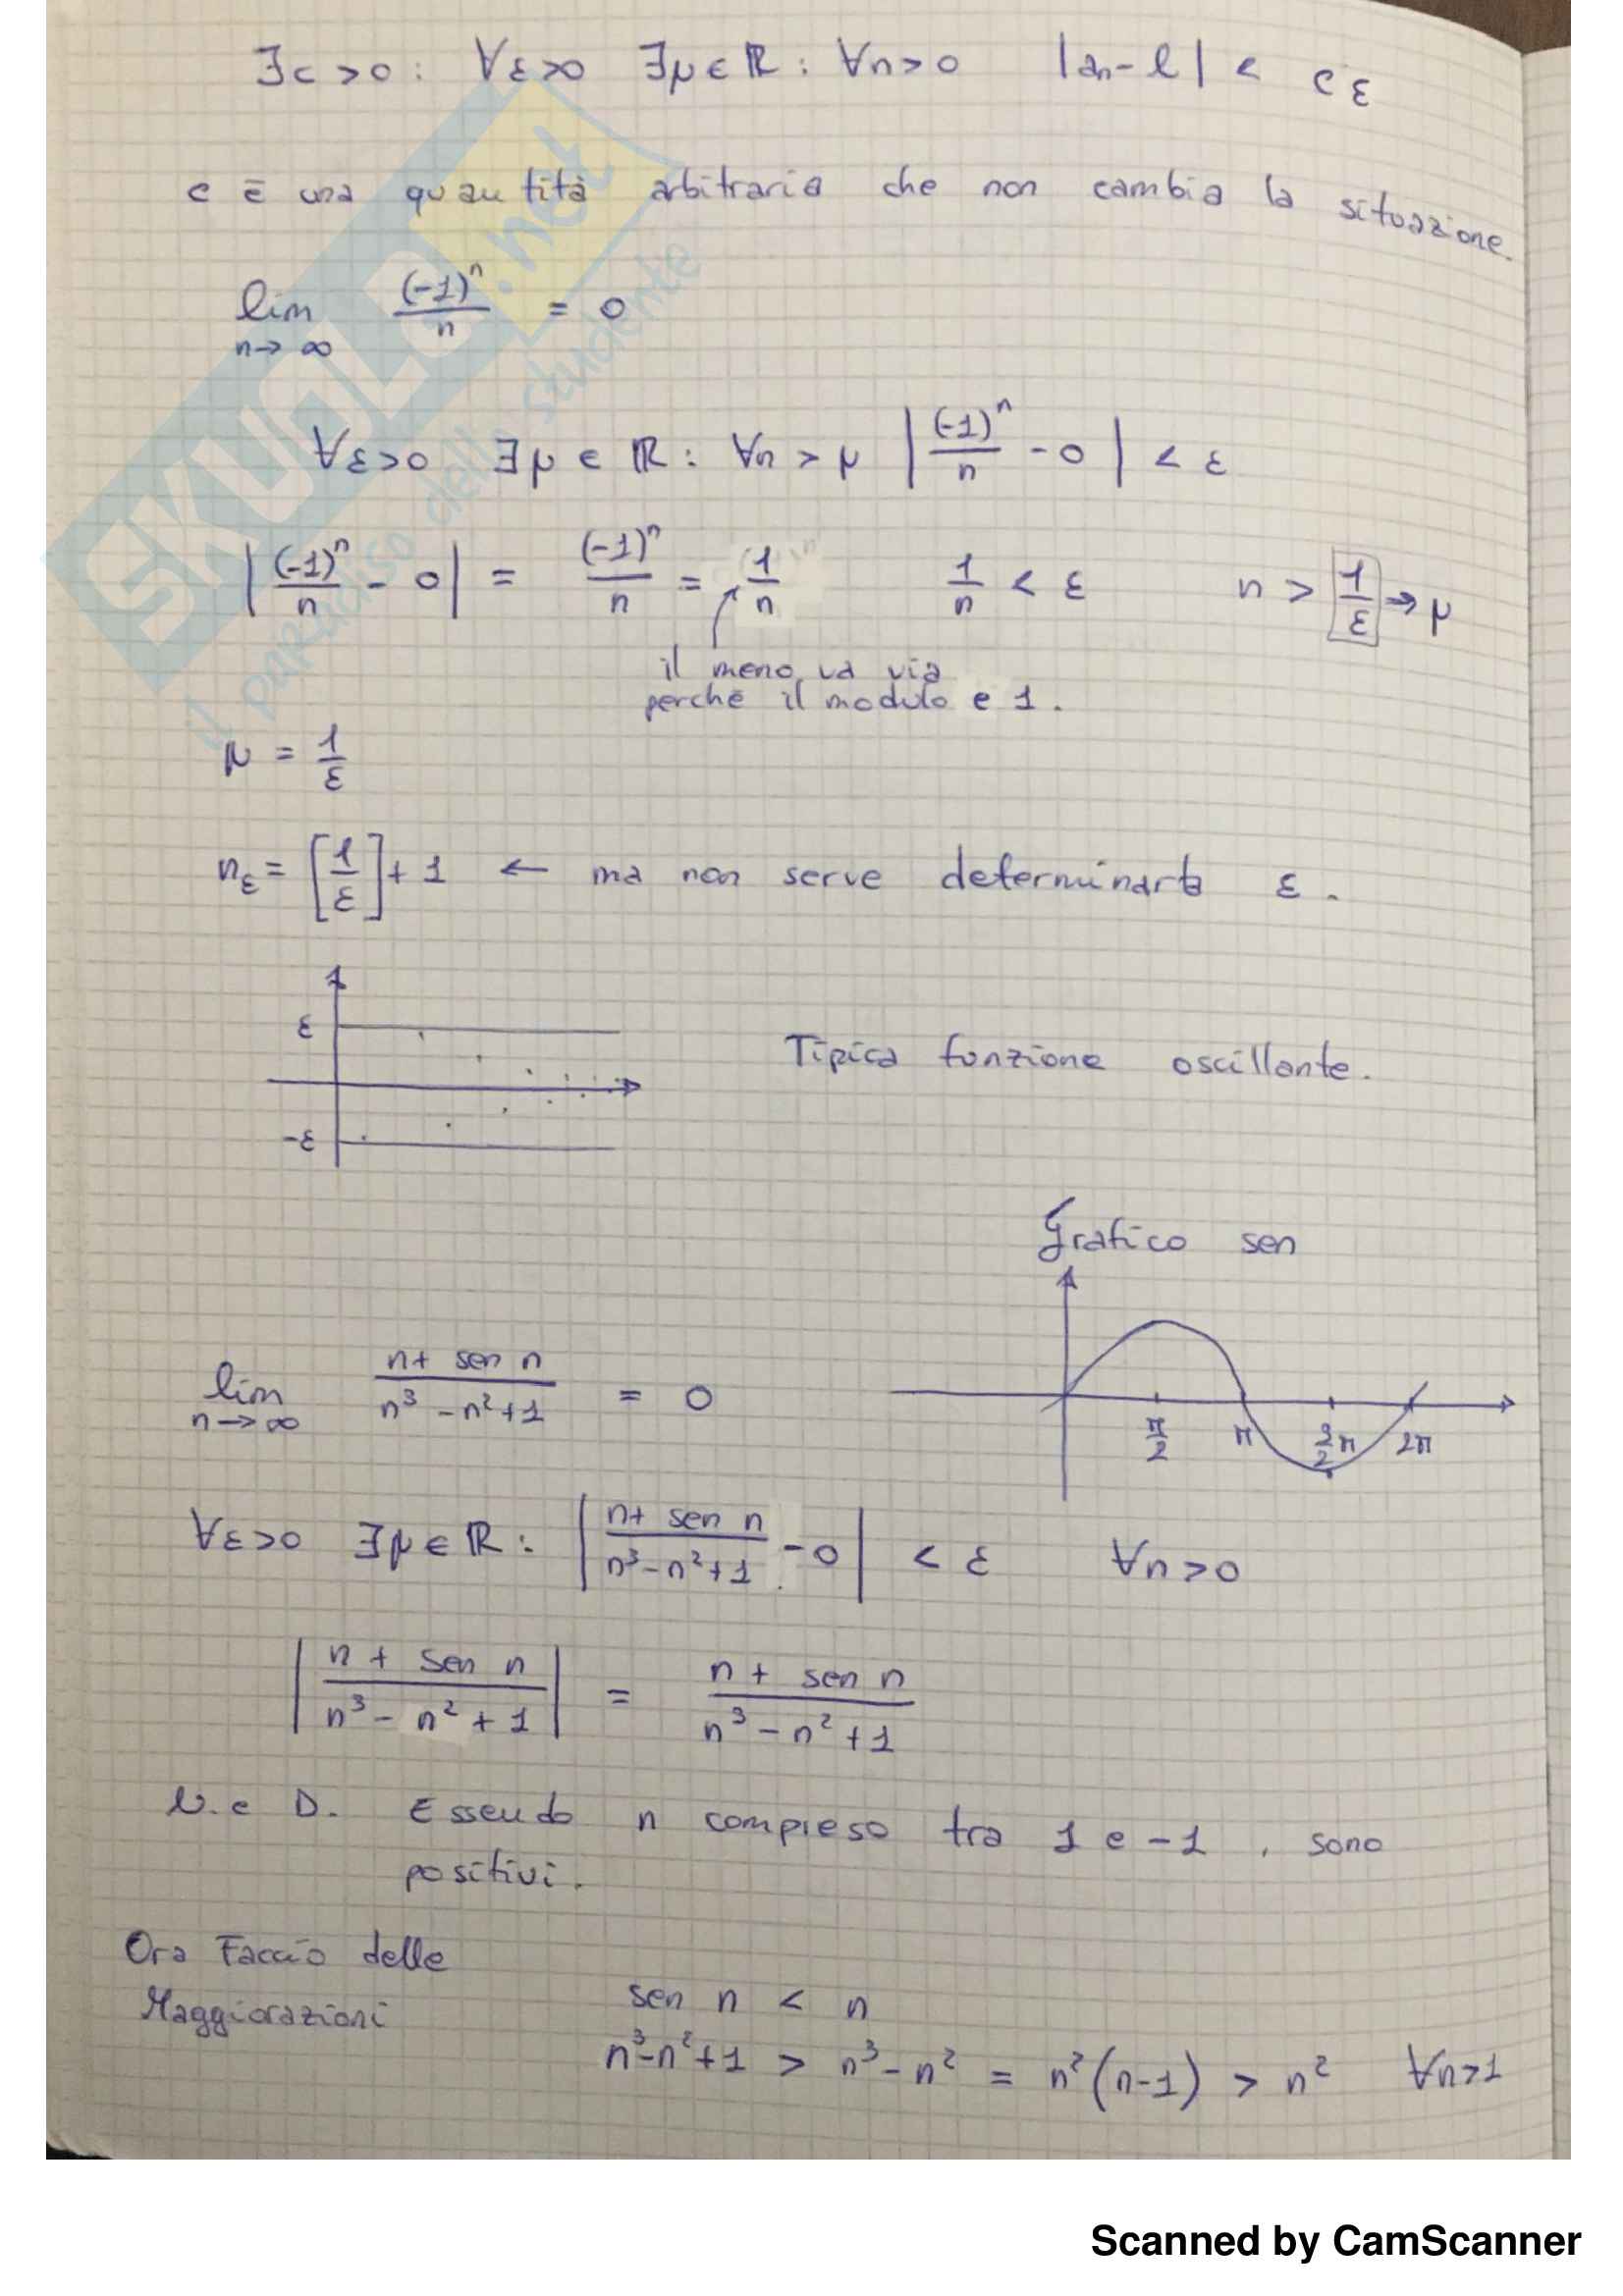 ∃c>0: ∀ε>0 ∃μ∈ℝ: ∀n>0 |an-l| < cε
c ē una quantità arbitraria che non cambia la situazione.
lim n→∞ (-1)^n/n = 0
∀ε>0 ∃μ∈ℝ: ∀n>μ |(-1)^n/n - 0| < ε
|(-1)^n/n - 0| = (-1)^n/n = 1/n 1/n < ε n > 1/ε → μ
il meno va via
perchē il modulo e 1.
μ = 1/ε
nε = [1/ε] + 1 ← ma non serve determinarta ε.
ε
Tipica funzione oscillante.
-ε
Grafico sen
π/2 π 3/2π 2π
lim n→∞ n+ sen n/n³-n²+1 = 0
∀ε>0 ∃μ∈ℝ: |n+ sen n/n³-n²+1 - 0| < ε ∀n>0
|n + sen n/n³-n²+1| = n + sen n/n³-n²+1
N.e D. Essendo n compreso tra 1 e -1, sono
positivi.
Ora Faccio delle
Maggiorazioni
sen n < n
n³-n²+1 > n³-n² = n²(n-1) > n² ∀n>1
SKUOLA.net
il paradiso dello studente
Scanned by CamScanner